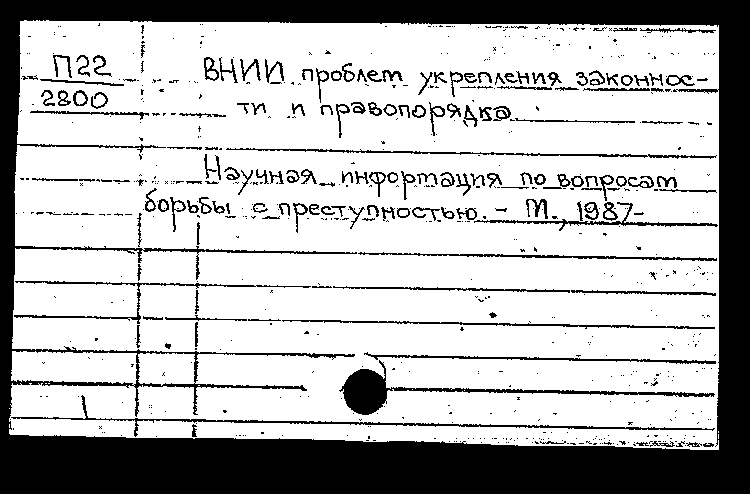 П22
2800
ВНИИ проблем укрепления законнос-
ти и правопорядка
Научная информация по вопросам
борьбы с преступностью. - М., 1987-